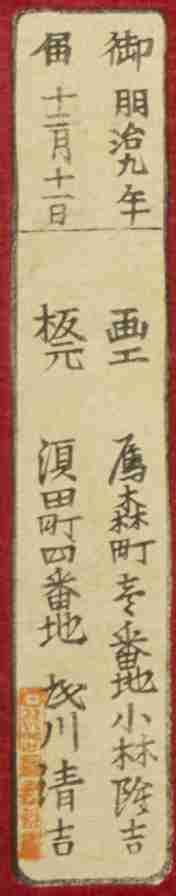 御 明治九年 画工 森町壱番地小林吉
届 十二月十一日 板元 須田町四番地 川清吉